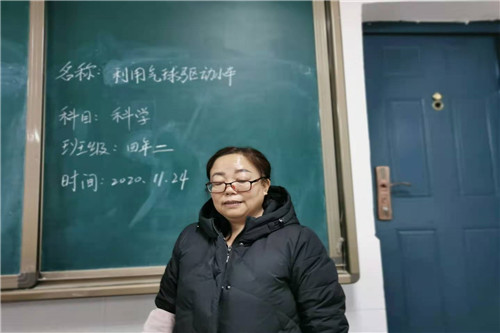 名称：利用气球驱动小车
科目：科学
班级：四年二
时间：2020.11.24